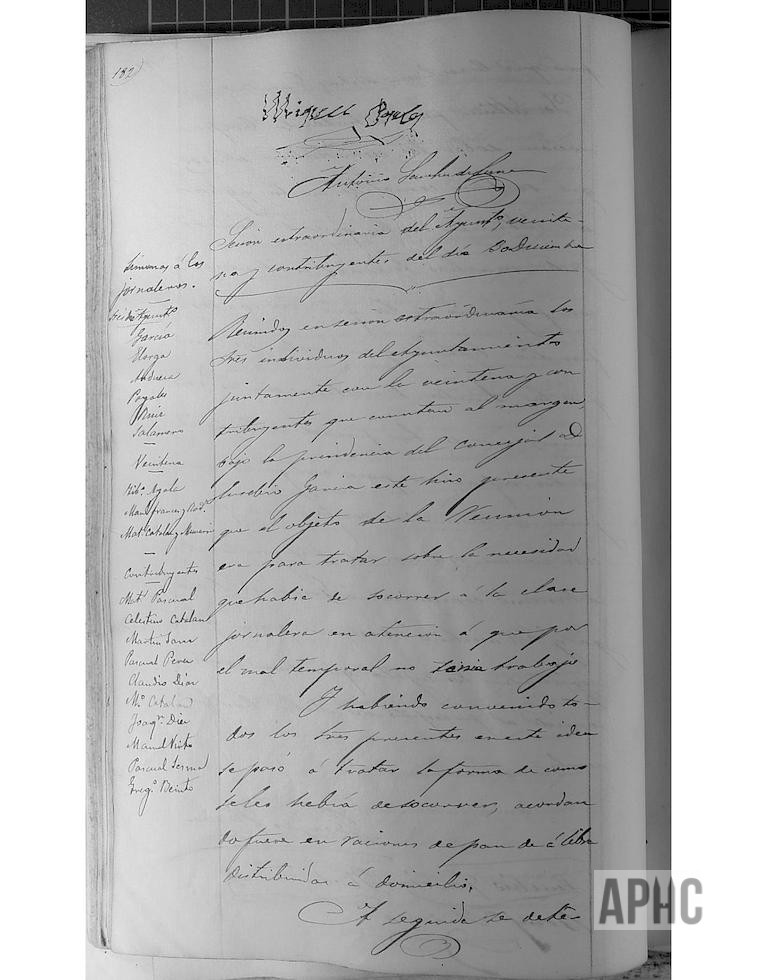 182
Miguel
Antonio Sanchez de Luna
Sesion estraordinaria del Ayunto, veinte-
na y contribuyentes del día Diciembre
Limosnas á los
jornaleros.
Ayunto
García
Ruiz
Salamero
Veintena
Ayala
Man.
Mat. Catalan y
Contribuyentes
Mat. Pascual
Celestino Catalan
Martin Sanz
Pascual Perez
Claudio Diaz
M.º Catalan
Joaqn. Diez
Manuel
Pascual Serna
Greg.º Benito
Reunidos en sesion estraordinaria los
Sres individuos del Ayuntamiento
juntamente con la veintena y con
tribuyentes que constan al margen,
bajo la presidencia del Concejal D
Eusebio Garcia este hizo presente
que el objeto de la Reunion
era para tratar sobre la necesidad
que habia de socorrer á la clase
jornalera en atencion á que por
el mal temporal no tenia trabajo
Y habiendo convenido to-
dos los Sres presentes en este idea
se pasó á tratar la forma de como
seles había de socorrer, acordan
do fuera en raciones de pan de á libra
distribuidas á domicilio.
A seguida se dete-
APHC